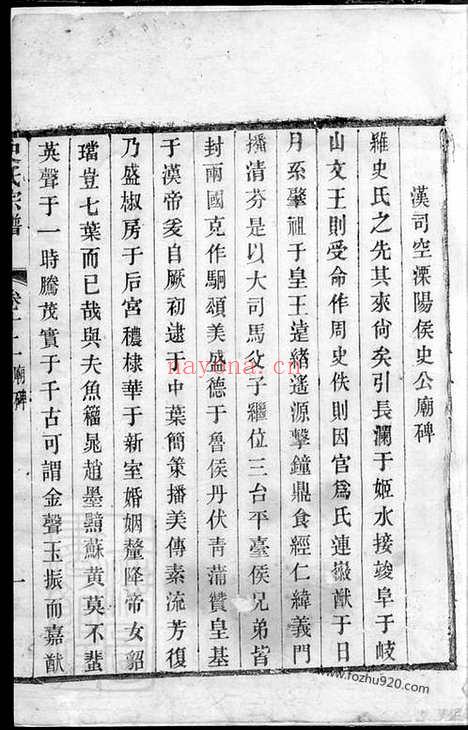 漢司空溧陽侯史公廟碑
維史氏之先其來尙矣引長瀾于姬水接竣阜于岐
山文王則受命作周史佚則因官爲氏連徽猷于日
月系肇祖于皇王遠緖遙源擊鐘鼎食經仁緯義門
播清芬是以大司馬父子繼位三台平臺侯兄弟皆
封兩國克作駉頌美盛德于魯侯丹伏青蒲贊皇基
于漢帝爰自厥初逮于中葉簡策播美傳素流芳復
乃盛椒房于后宮穠棣華于新室婚姻釐降帝女貂
璫豈七葉而已哉與夫魚籀晁趙墨黯蘇黃莫不蜚
英聲于一時騰茂實于千古可謂金聲玉振而嘉猷
史氏宗譜
卷二十一 廟碑
一
nayona.cn
www.fozhu920.com